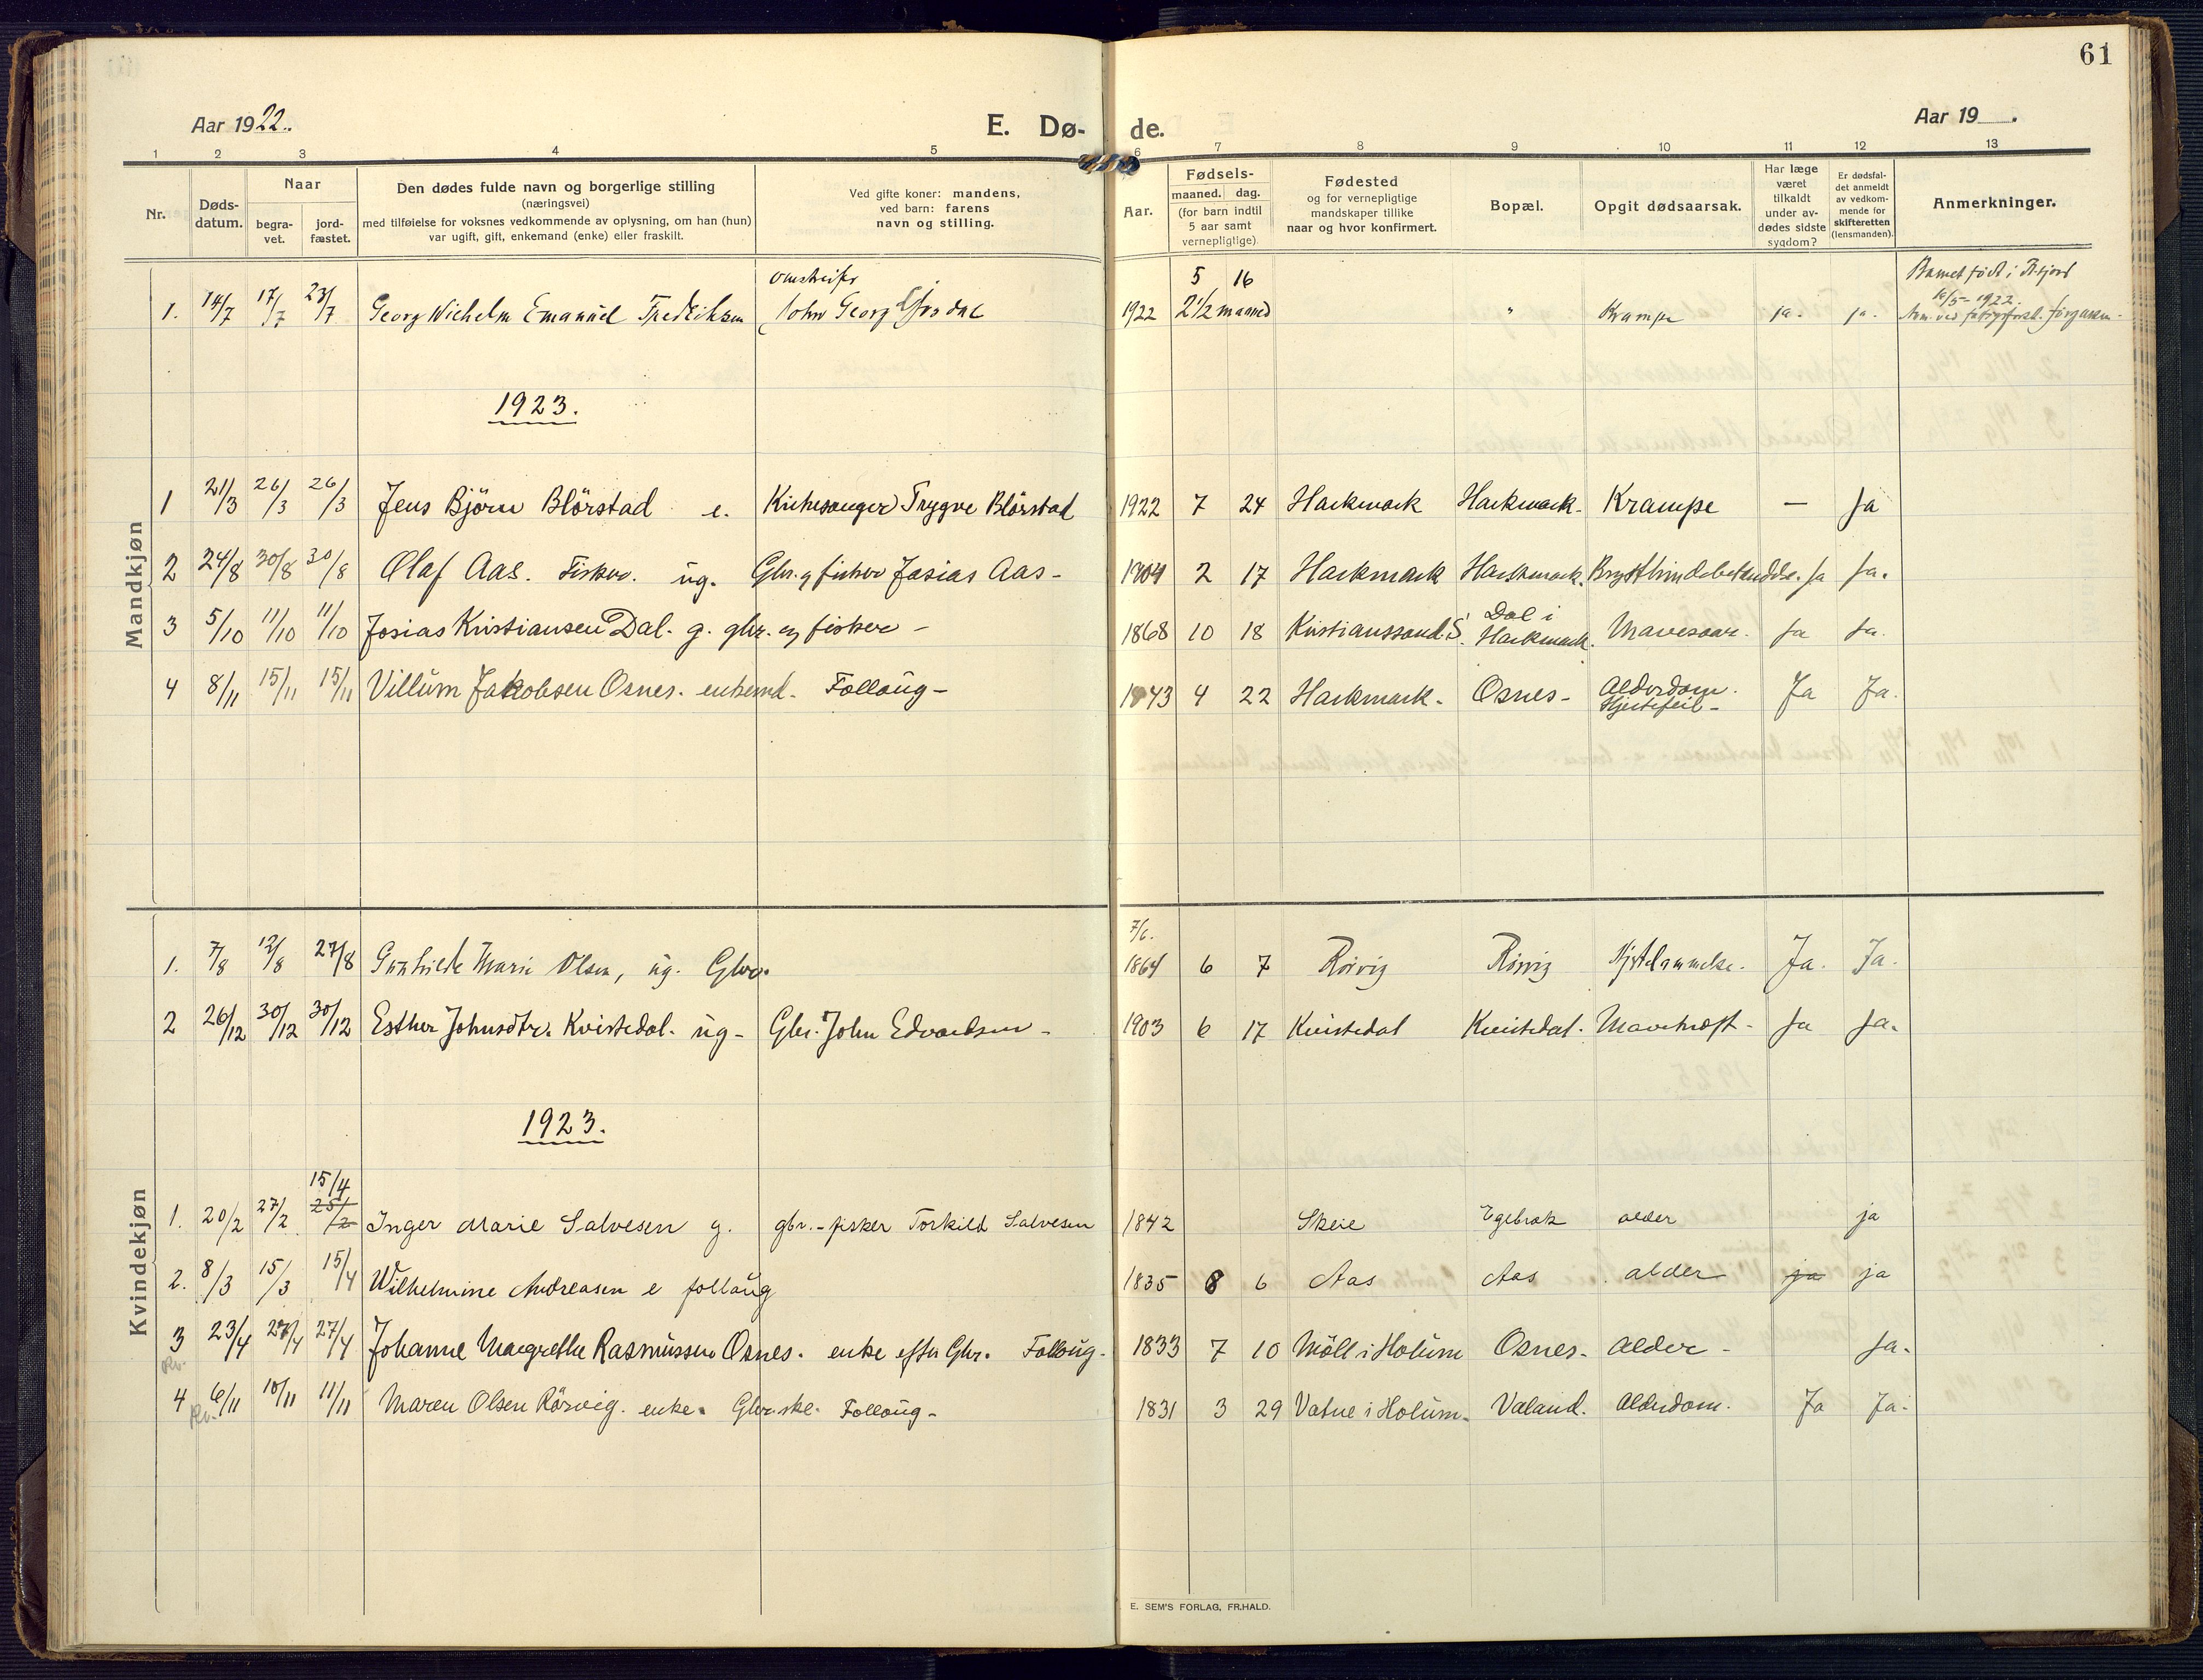 61
Aar 1922.
E. Dø- de.
Aar 19 .
1 2 3 4 5 6 7 8 9 10 11 12 13
Nr.
Døds-
datum.
Naar
begra-
vet.
jord-
fæstet.
Den dødes fulde navn og borgerlige stilling
(næringsvei)
med tilføielse for voksnes vedkommende av oplysning, om han (hun)
var ugift, gift, enkemand (enke) eller fraskilt.
Ved gifte koner: mandens,
ved barn: farens
navn og stilling.
Aar.
Fødsels-
maaned. dag.
(for barn indtil
5 aar samt
vernepligtige)
Fødested
og for vernepligtige
mandskaper tillike
naar og hvor konfirmert.
Bopæl.
Opgit dødsaarsak.
Har læge
været
tilkaldt
under av-
dødes sidste
sygdom?
Er dødsfal-
det anmeldt
av vedkom-
mende for
skifteretten
(lensmanden).
Anmerkninger.
Mandkjøn
omstreifer 5 16 Barnet født i
1. 14/7 17/7 23/7 Georg Wilhelm Emanuel Fredriksen John Georg 1922 2 1/2 maaned " Krampe ja. ja. 16/5-1922.
1923.
1 21/3 26/3 26/3 Jens Björn Blörstad e. Kirkesanger Trygve Blörstad 1922 7 24 Harkmark Harkmark. Krampe — Ja
2 24/8 30/8 30/8 Olaf Aas. Fisker. ug. Gbr. og fisker Josias Aas - 1904 2 17 Harkmark Harkmark. Brysthindebetændelse. Ja Ja.
3 5/10 11/10 11/10 Josias Kristiansen Dal. g. gbr. og fisker - 1868 10 18 Kristianssand S. Dal i Harkmark. Mavesaar. Ja Ja.
4 8/11 15/11 15/11 Villum Jakobsen Osnes. enkemd. Follaug - 1843 4 22 Harkmark. Osnes - Alderdom. Hjertefeil - Ja Ja.
Kvindekjøn
7/6.
1. 7/8 12/8 27/8 Gunhilde Marie Olsen, ug. Gbr. 1864 6 7 Rörvig Rörvig Hjertelammelse. Ja. Ja.
2 26/12 30/12 30/12 Esther Johnsdtr. Kvistedal. ug - Gbr. John Edvardsen - 1903 6 17 Kvistedal Kvistedal. Mavekræft - Ja Ja.
1923.
15/4
1. 20/2 27/2 25/2 Inger Marie Salvesen g. gbr. - fisker Torkild Salvesen 1842 Skeie Egebrok alder ja
2. 8/3 15/3 15/4 Wilhelmine Andreasen e follaug 1835 8 6 Aas Aas alder ja ja
3 23/4 27/4 27/4 Johanne Margrethe Rasmussen Osnes. enke efter Gbr. Follaug - 1833 7 10 Möll i Holum Osnes - Alder - Ja.
4 6/11 10/11 11/11 Maren Olsen Rörvig. enke. Gbrske. Follaug - 1831 3 29 Vatne i Holum - Valand. Alderdom. Ja Ja.
E. SEM'S FORLAG, FR.HALD.